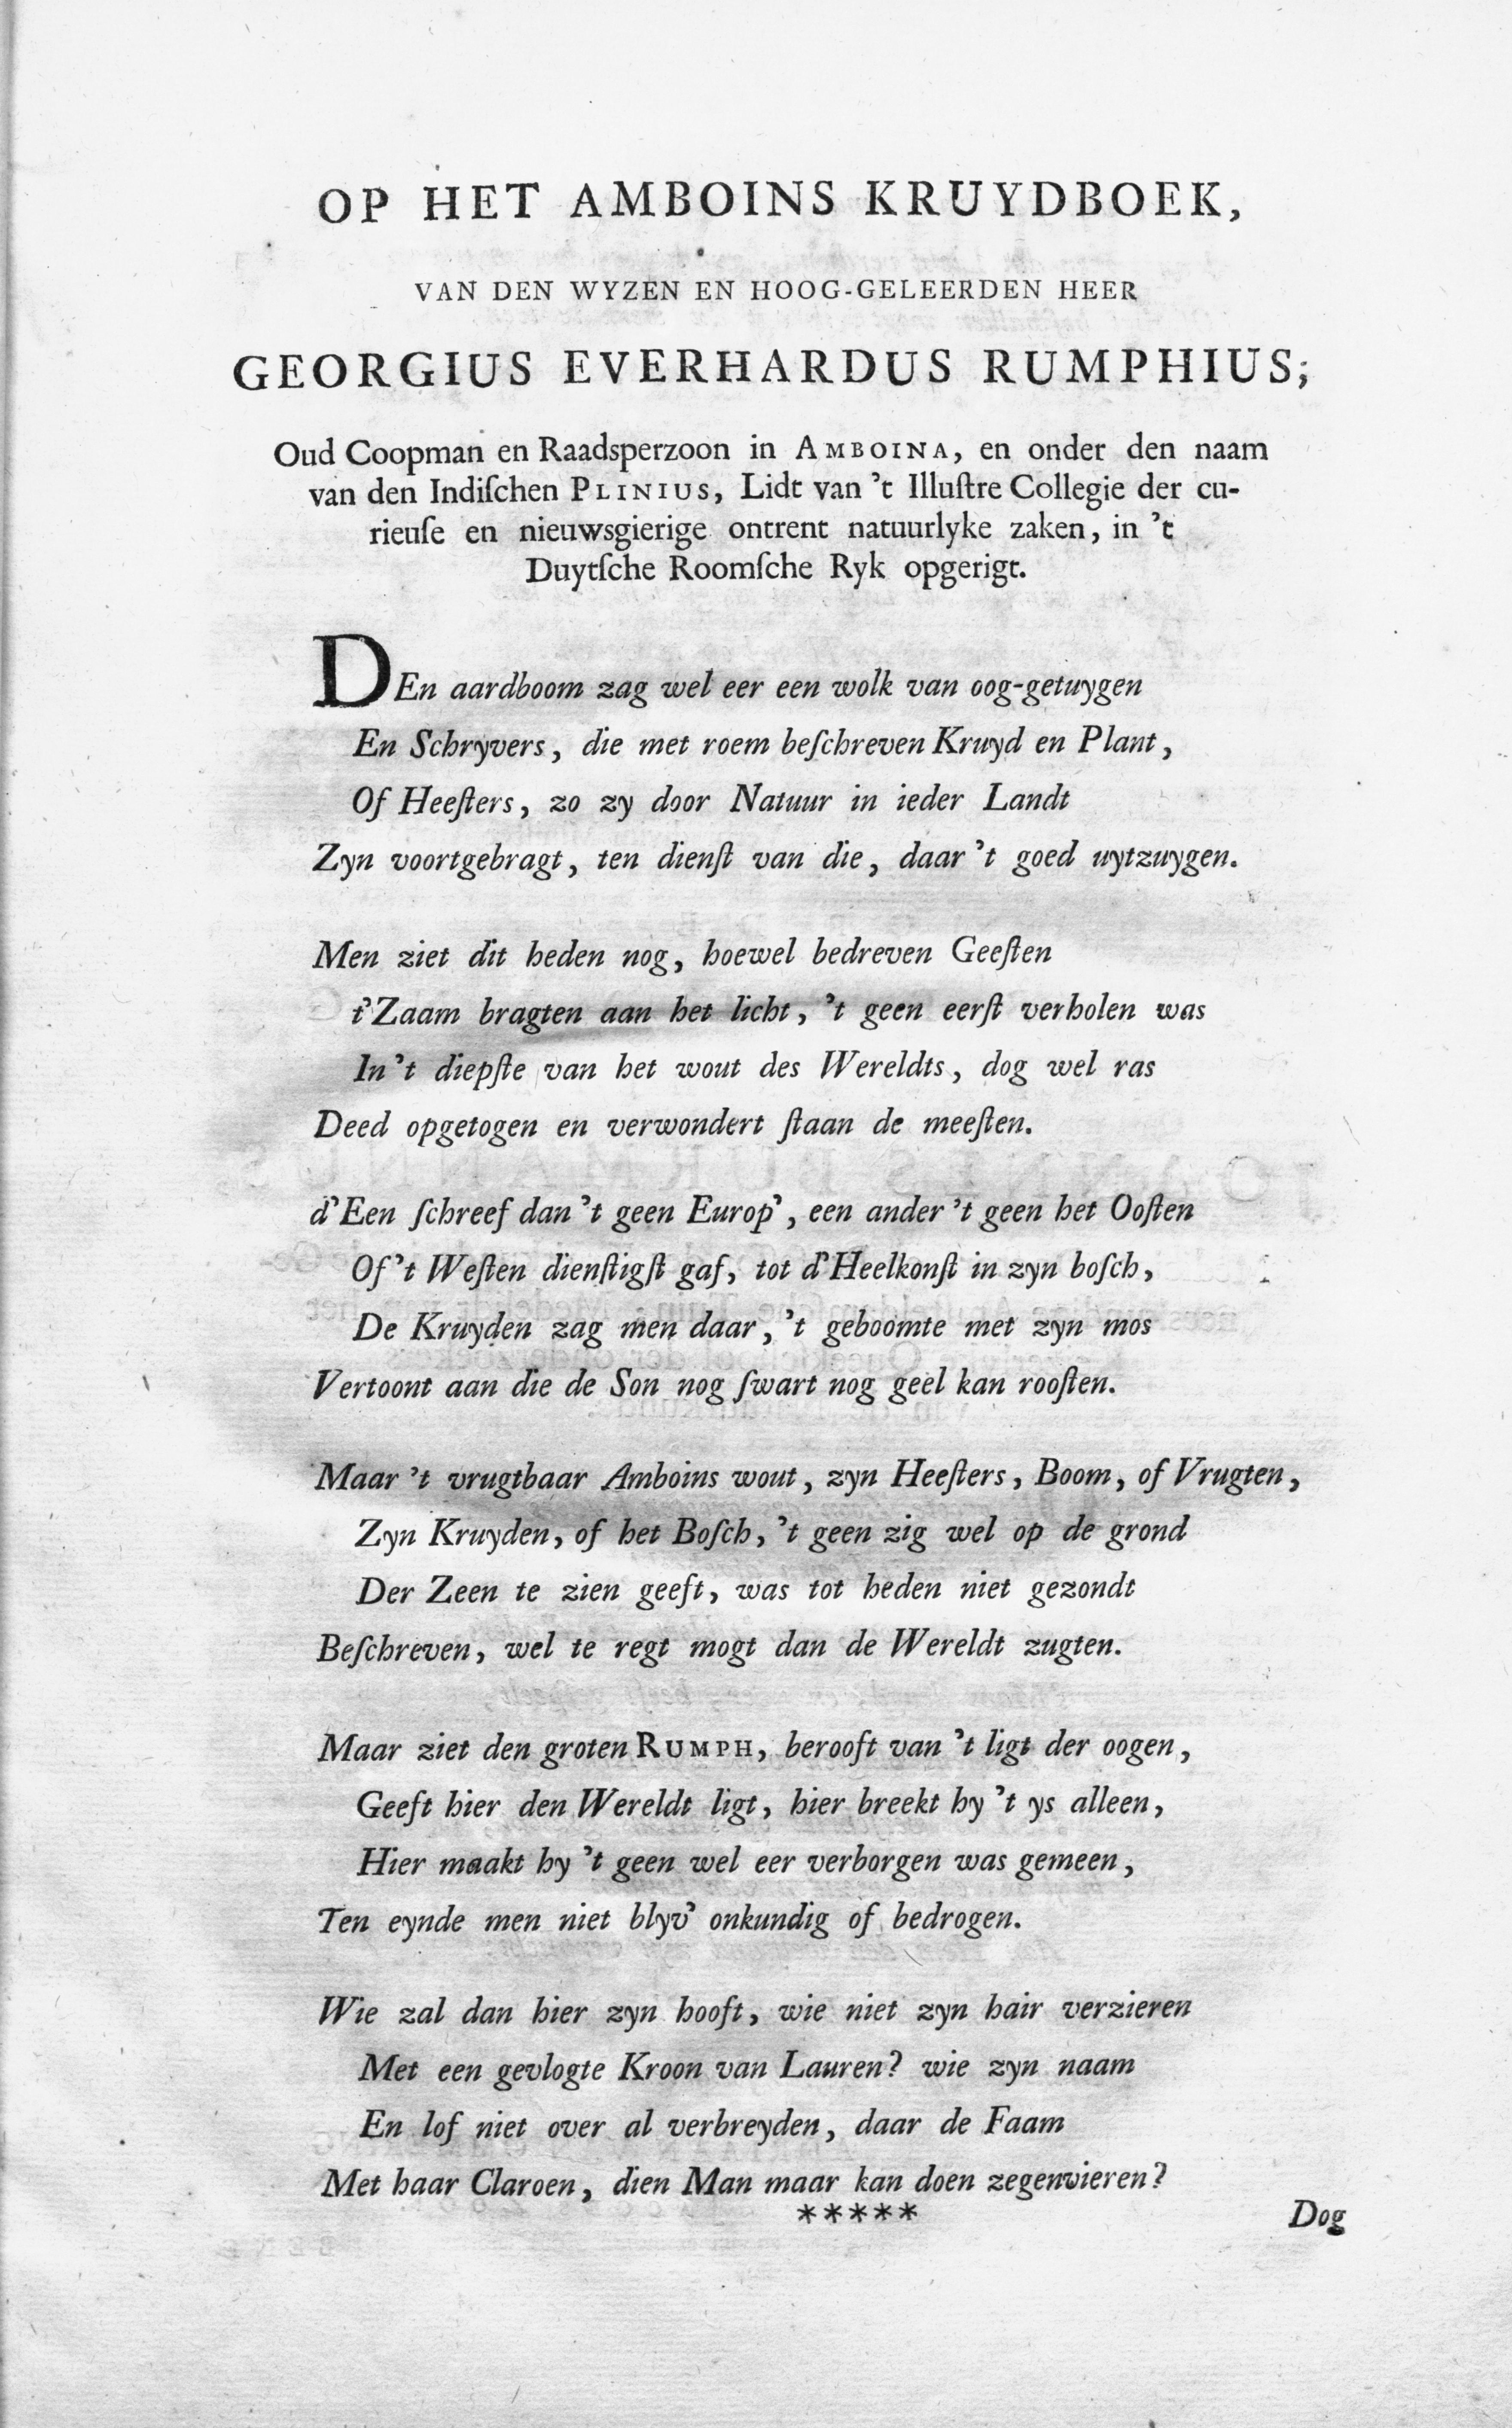 OP HET AMBOINS KRUYDBOEK,
VAN DEN WYZEN EN HOOG-GELEERDEN HEER
GEORGIUS EVERHARDUS RUMPHIUS;
Oud Coopman en Raadsperzoon in AMBOINA, en onder den naam
van den Indiſchen PLINIUS, Lidt van 't Illuſtre Collegie der cu-
rieuſe en nieuwsgierige ontrent natuurlyke zaken, in 't
Duytſche Roomſche Ryk opgerigt.
DEn aardboom zag wel eer een wolk van oog-getuygen
En Schryvers, die met roem beſchreven Kruyd en Plant,
Of Heeſters, zo zy door Natuur in ieder Landt
Zyn voortgebragt, ten dienſt van die, daar 't goed uytzuygen.
Men ziet dit heden nog, hoewel bedreven Geeſten
t'Zaam bragten aan het licht, 't geen eerſt verholen was
In 't diepſte van het wout des Wereldts, dog wel ras
Deed opgetogen en verwondert ſtaan de meeſten.
d'Een ſchreef dan 't geen Europ', een ander 't geen het Ooſten
Of 't Weſten dienſtigſt gaf, tot d'Heelkonſt in zyn boſch,
De Kruyden zag men daar, 't geboomte met zyn mos
Vertoont aan die de Son nog ſwart nog geel kan rooſten.
Maar 't vrugtbaar Amboins wout, zyn Heeſters, Boom, of Vrugten,
Zyn Kruyden, of het Boſch, 't geen zig wel op de grond
Der Zeen te zien geeft, was tot heden niet gezondt
Beſchreven, wel te regt mogt dan de Wereldt zugten.
Maar ziet den groten RUMPH, berooft van 't ligt der oogen,
Geeft hier den Wereldt ligt, hier breekt hy 't ys alleen,
Hier maakt hy 't geen wel eer verborgen was gemeen,
Ten eynde men niet blyv' onkundig of bedrogen.
Wie zal dan hier zyn hooft, wie niet zyn hair verzieren
Met een gevlogte Kroon van Lauren? wie zyn naam
En lof niet over al verbreyden, daar de Faam
Met haar Claroen, dien Man maar kan doen zegenvieren?
*****
Dog